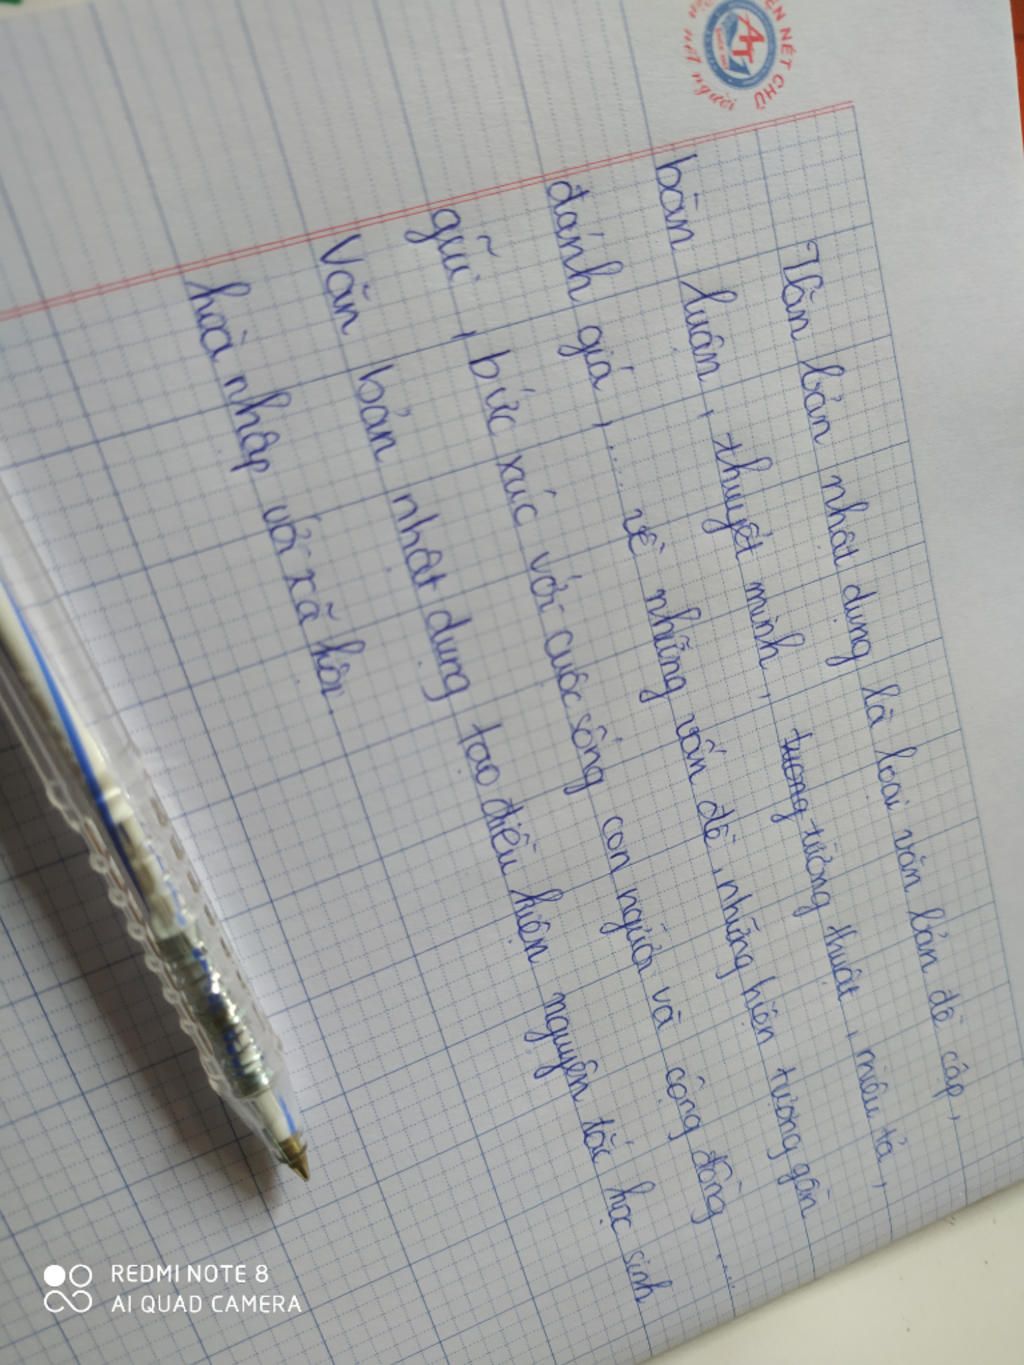 RÈN NÉT CHỮ
nết người
AT
Văn bản nhật dụng là loại văn bản đề cập,
bàn luận, thuyết minh, tương tường thuật, miêu tả,
đánh giá, .... về những vấn đề, những hiện tượng gần
gũi, bức xúc với cuộc sống con người và cộng đồng ....
Văn bản nhật dụng tạo điều kiện nguyên tắc học sinh
hoà nhập với xã hội.
REDMI NOTE 8
AI QUAD CAMERA